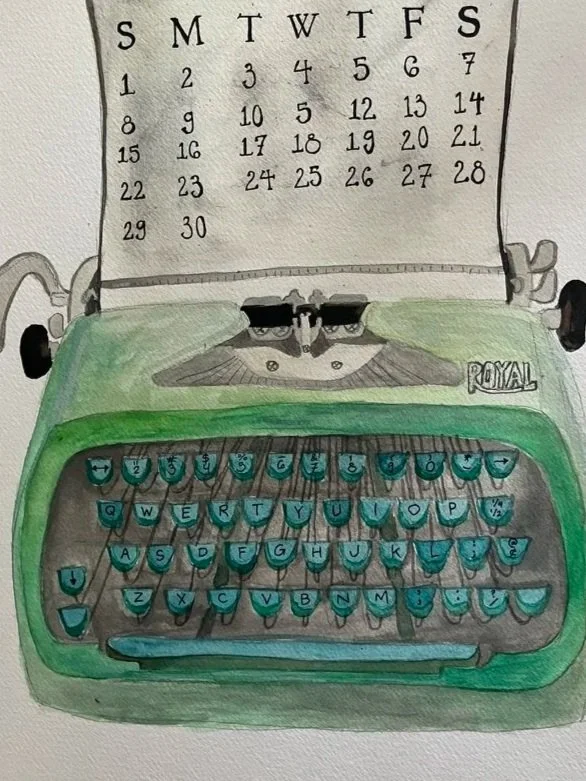 S M T W T F S
1 2 3 4 5 6 7
8 9 10 5 12 13 14
15 16 17 18 19 20 21
22 23 24 25 26 27 28
29 30
ROYAL
Q W E R T Y U I O P ¼ ½
A S D F G H J K L ;
Z X C V B N M